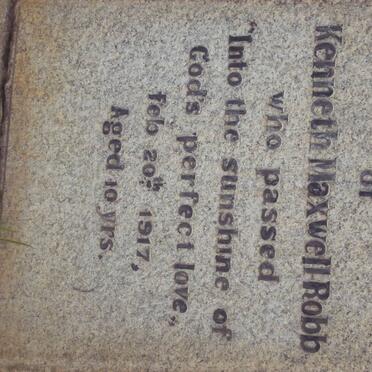 of
Kenneth Maxwell Robb
who passed
"Into the sunshine of
God's perfect love,"
Feb 20th 1917,
Aged 10 yrs.